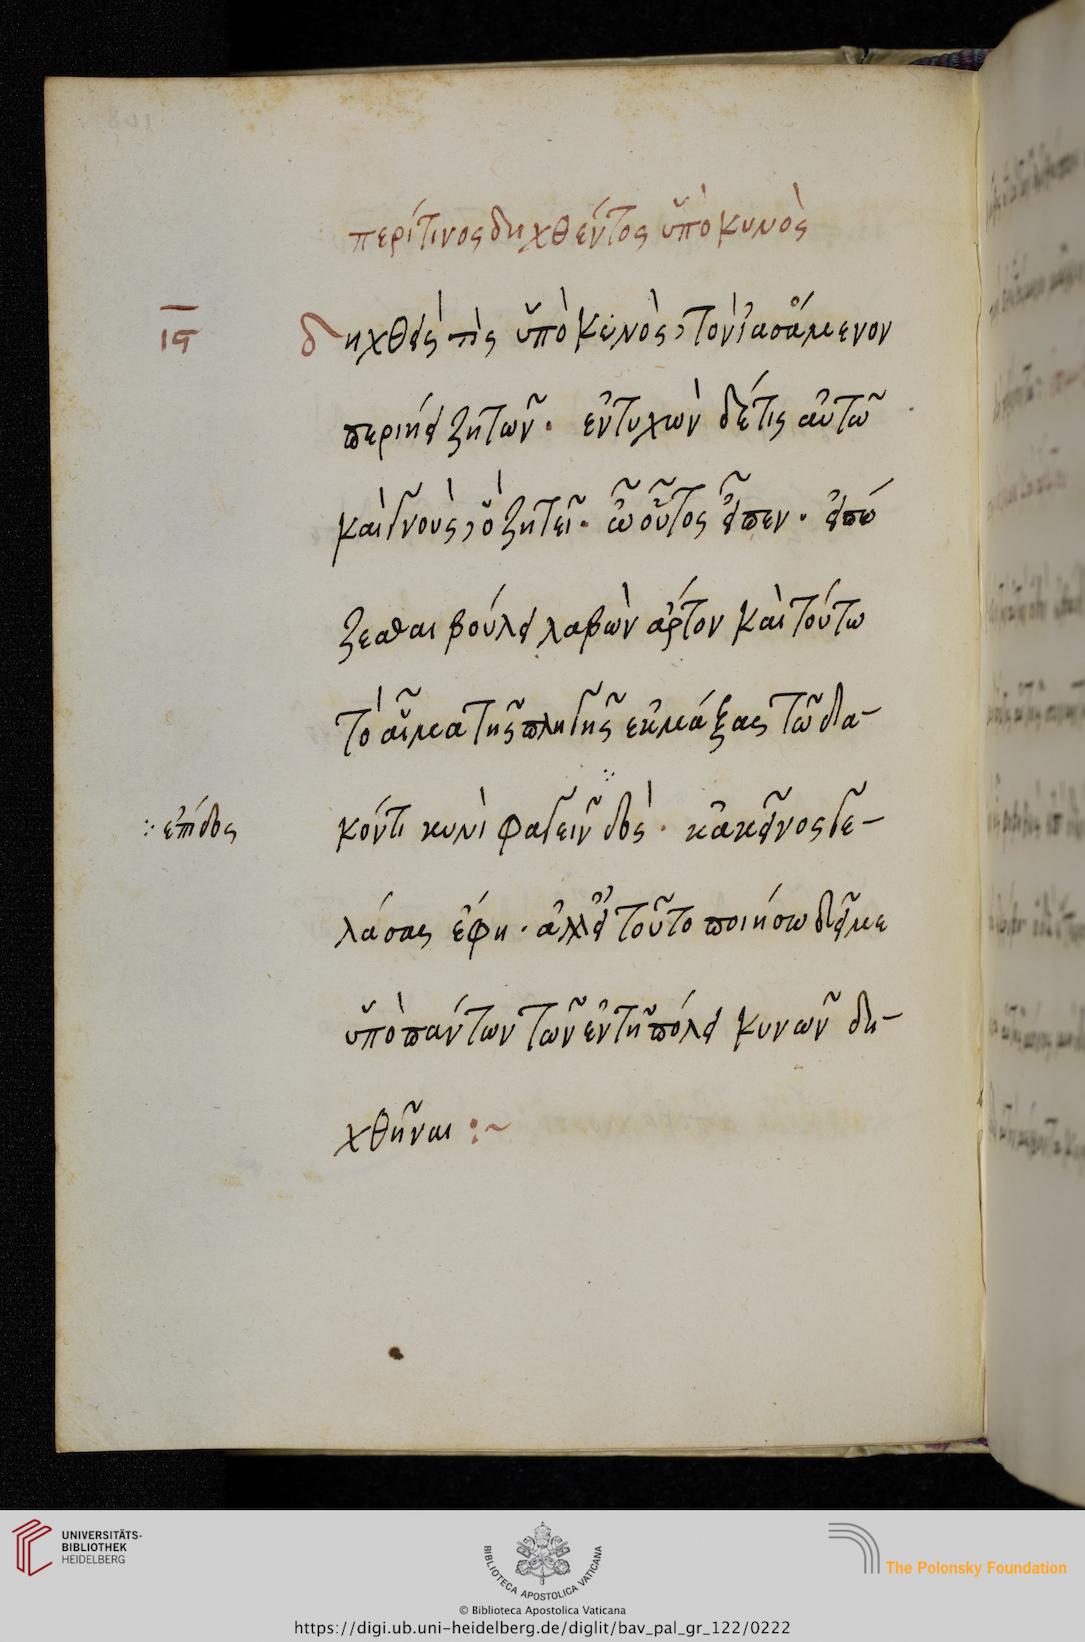 περί τινος δηχθέντος ὑπὸ κυνὸς
ις
δηχθείς τὶς ὑπὸ κυνὸς, τὸν ἰασάμενον
περιήει ζητῶν. ἐντυχὼν δέ τις αὐτῶ
καὶ γνοὺς, ὃ ζητεῖ. ὦ οὗτος εἶπεν. εἰ σώ
ζεσθαι βούλει λαβὼν ἄρτον καὶ τούτω
τὸ αἷμα τῆς πληγῆς ἐκμάξας τῶ δα-
κόντι κυνὶ φαγεῖν δὸς. κἀκεῖνος γε-
ἐπίδος
λάσας ἔφη. ἀλλ' εἰ τοῦτο ποιήσω δεῖ με
ὑπὸ πάντων τῶν ἐν τῆ πόλει κυνῶν δη-
χθῆναι :~
UNIVERSITÄTS-
BIBLIOTHEK
HEIDELBERG
BIBLIOTECA APOSTOLICA VATICANA
The Polonsky Foundation
© Biblioteca Apostolica Vaticana
https://digi.ub.uni-heidelberg.de/diglit/bav_pal_gr_122/0222